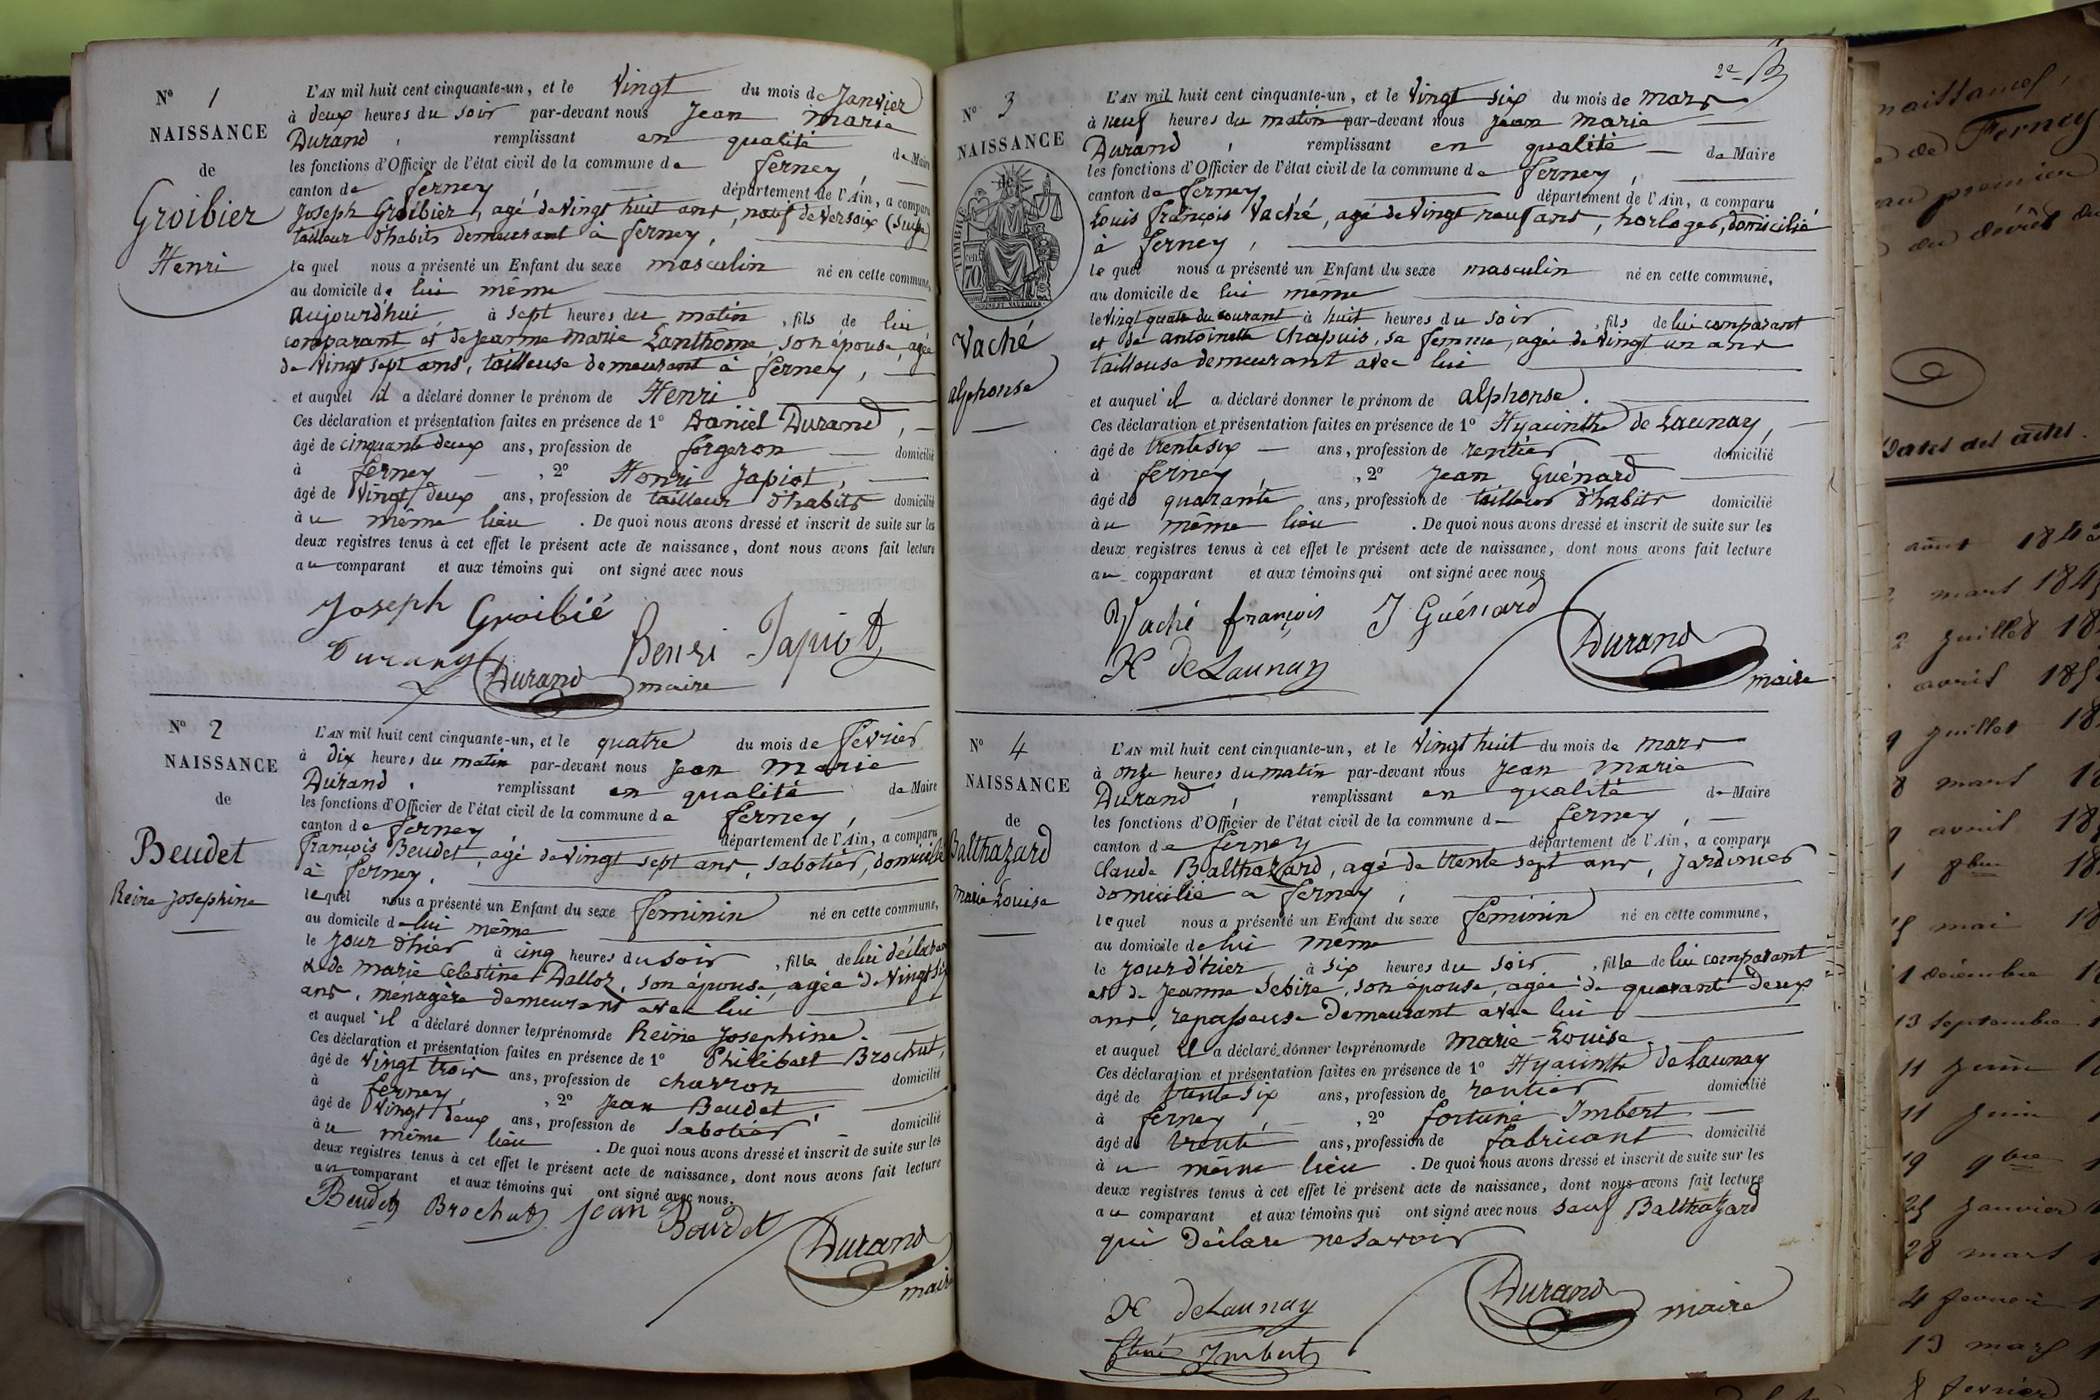 N° 1
NAISSANCE
de
Groibier
Henri
L'AN mil huit cent cinquante-un, et le Vingt du mois de Janvier
à deux heures du soir par-devant nous Jean Marie
Durand, remplissant en qualité de Maire
les fonctions d'Officier de l'état civil de la commune de ferney,
canton de ferney département de l'Ain, a comparu
Joseph Groibier, agé de Vingt huit ans, natif de Versoix (Suisse)
tailleur d'habits demeurant à ferney,
lequel nous a présenté un Enfant du sexe masculin né en cette commune,
au domicile de lui même
aujourd'hui à sept heures du matin, fils de lui
comparant et de jeanne marie Lanthome, son épouse, agée
de Vingt sept ans, tailleuse demeurant à ferney,
et auquel il a déclaré donner le prénom de Henri
Ces déclaration et présentation faites en présence de 1° Daniel Durand,
âgé de cinquante deux ans, profession de forgeron domicilié
à ferney, 2° Henri Japiot,
âgé de Vingt deux ans, profession de tailleur d'habits domicilié
au même lieu. De quoi nous avons dressé et inscrit de suite sur les
deux registres tenus à cet effet le présent acte de naissance, dont nous avons fait lecture
au comparant et aux témoins qui ont signé avec nous
Joseph Groibié
Durand Henri Japiot
Durand maire
N° 2
NAISSANCE
de
Beudet
Reine Josephine
L'AN mil huit cent cinquante-un, et le quatre du mois de février
à dix heures du matin par-devant nous Jean Marie
Durand, remplissant en qualité de Maire
les fonctions d'Officier de l'état civil de la commune de ferney,
canton de ferney département de l'Ain, a comparu
françois Beudet, agé de Vingt sept ans, sabotier, domicilié
à ferney,
lequel nous a présenté un Enfant du sexe feminin né en cette commune,
au domicile de lui même
le jour d'hier à cinq heures du soir, fille de lui déclarant
& de marie Celestine Dalloz, son épouse, agée de Vingt six
ans, ménagère demeurant avec lui
et auquel il a déclaré donner les prénoms de Reine Josephine.
Ces déclaration et présentation faites en présence de 1° Philibert Brochut,
âgé de Vingt trois ans, profession de charron domicilié
à ferney, 2° Jean Beudet,
âgé de Vingt deux ans, profession de sabotier domicilié
au même lieu. De quoi nous avons dressé et inscrit de suite sur les
deux registres tenus à cet effet le présent acte de naissance, dont nous avons fait lecture
au comparant et aux témoins qui ont signé avec nous,
Beudet Brochut Jean Boudet
Durand
maire
2e
N° 3
NAISSANCE
de
TIMBRE
70
Vaché
alphonse
L'AN mil huit cent cinquante-un, et le Vingt six du mois de mars
à neuf heures du matin par-devant nous Jean Marie
Durand, remplissant en qualité de Maire
les fonctions d'Officier de l'état civil de la commune de ferney,
canton de ferney département de l'Ain, a comparu
Louis françois Vaché, agé de Vingt neuf ans, horloger, domicilié
à ferney,
lequel nous a présenté un Enfant du sexe masculin né en cette commune,
au domicile de lui même
le Vingt quatre du courant à huit heures du soir, fils de lui comparant
et de antoinette Chapuis, sa femme, agée de Vingt un ans
tailleuse demeurant avec lui
et auquel il a déclaré donner le prénom de alphonse.
Ces déclaration et présentation faites en présence de 1° Hyacinthe de Launay,
âgé de trente six ans, profession de rentier domicilié
à ferney, 2° Jean Guénard
âgé de quarante ans, profession de tailleur d'habits domicilié
au même lieu. De quoi nous avons dressé et inscrit de suite sur les
deux registres tenus à cet effet le présent acte de naissance, dont nous avons fait lecture
au comparant et aux témoins qui ont signé avec nous
Vaché françois J Guénard
H deLaunay Durand
maire
N° 4
NAISSANCE
de
Balthazard
marie Louise
L'AN mil huit cent cinquante-un, et le Vingt huit du mois de mars
à onze heures du matin par-devant nous Jean Marie
Durand, remplissant en qualité de Maire
les fonctions d'Officier de l'état civil de la commune de ferney,
canton de ferney département de l'Ain, a comparu
Claude Balthazard, agé de trente sept ans, Jardinier
domicilié à ferney,
lequel nous a présenté un Enfant du sexe feminin né en cette commune,
au domicile de lui même
le jour d'hier à six heures du soir, fille de lui comparant
et de Jeanne Sebire, son épouse, agée de quarante deux
ans, repasseuse demeurant avec lui
et auquel il a déclaré donner les prénoms de marie-Louise.
Ces déclaration et présentation faites en présence de 1° Hyacinthe de Launay
âgé de trente six ans, profession de rentier domicilié
à ferney, 2° fortuné Imbert
âgé de trente ans, profession de fabricant domicilié
au même lieu. De quoi nous avons dressé et inscrit de suite sur les
deux registres tenus à cet effet le présent acte de naissance, dont nous avons fait lecture
au comparant et aux témoins qui ont signé avec nous sauf Balthazard
qui déclare ne savoir
H deLaunay Durand maire
Imbert
naissances,
de Ferney
au premier
Dates des actes.
août 184
mars 184
juillet 18
avril 18
juillet 18
8 mars 1
avril 18
1 8bre 18
mai 18
1 décembre 1
13 septembre 1
11 juin 1
11 juin 1
19 9bre
25 janvier
28 mars
4 fevrier
13 mars
8 fevrier